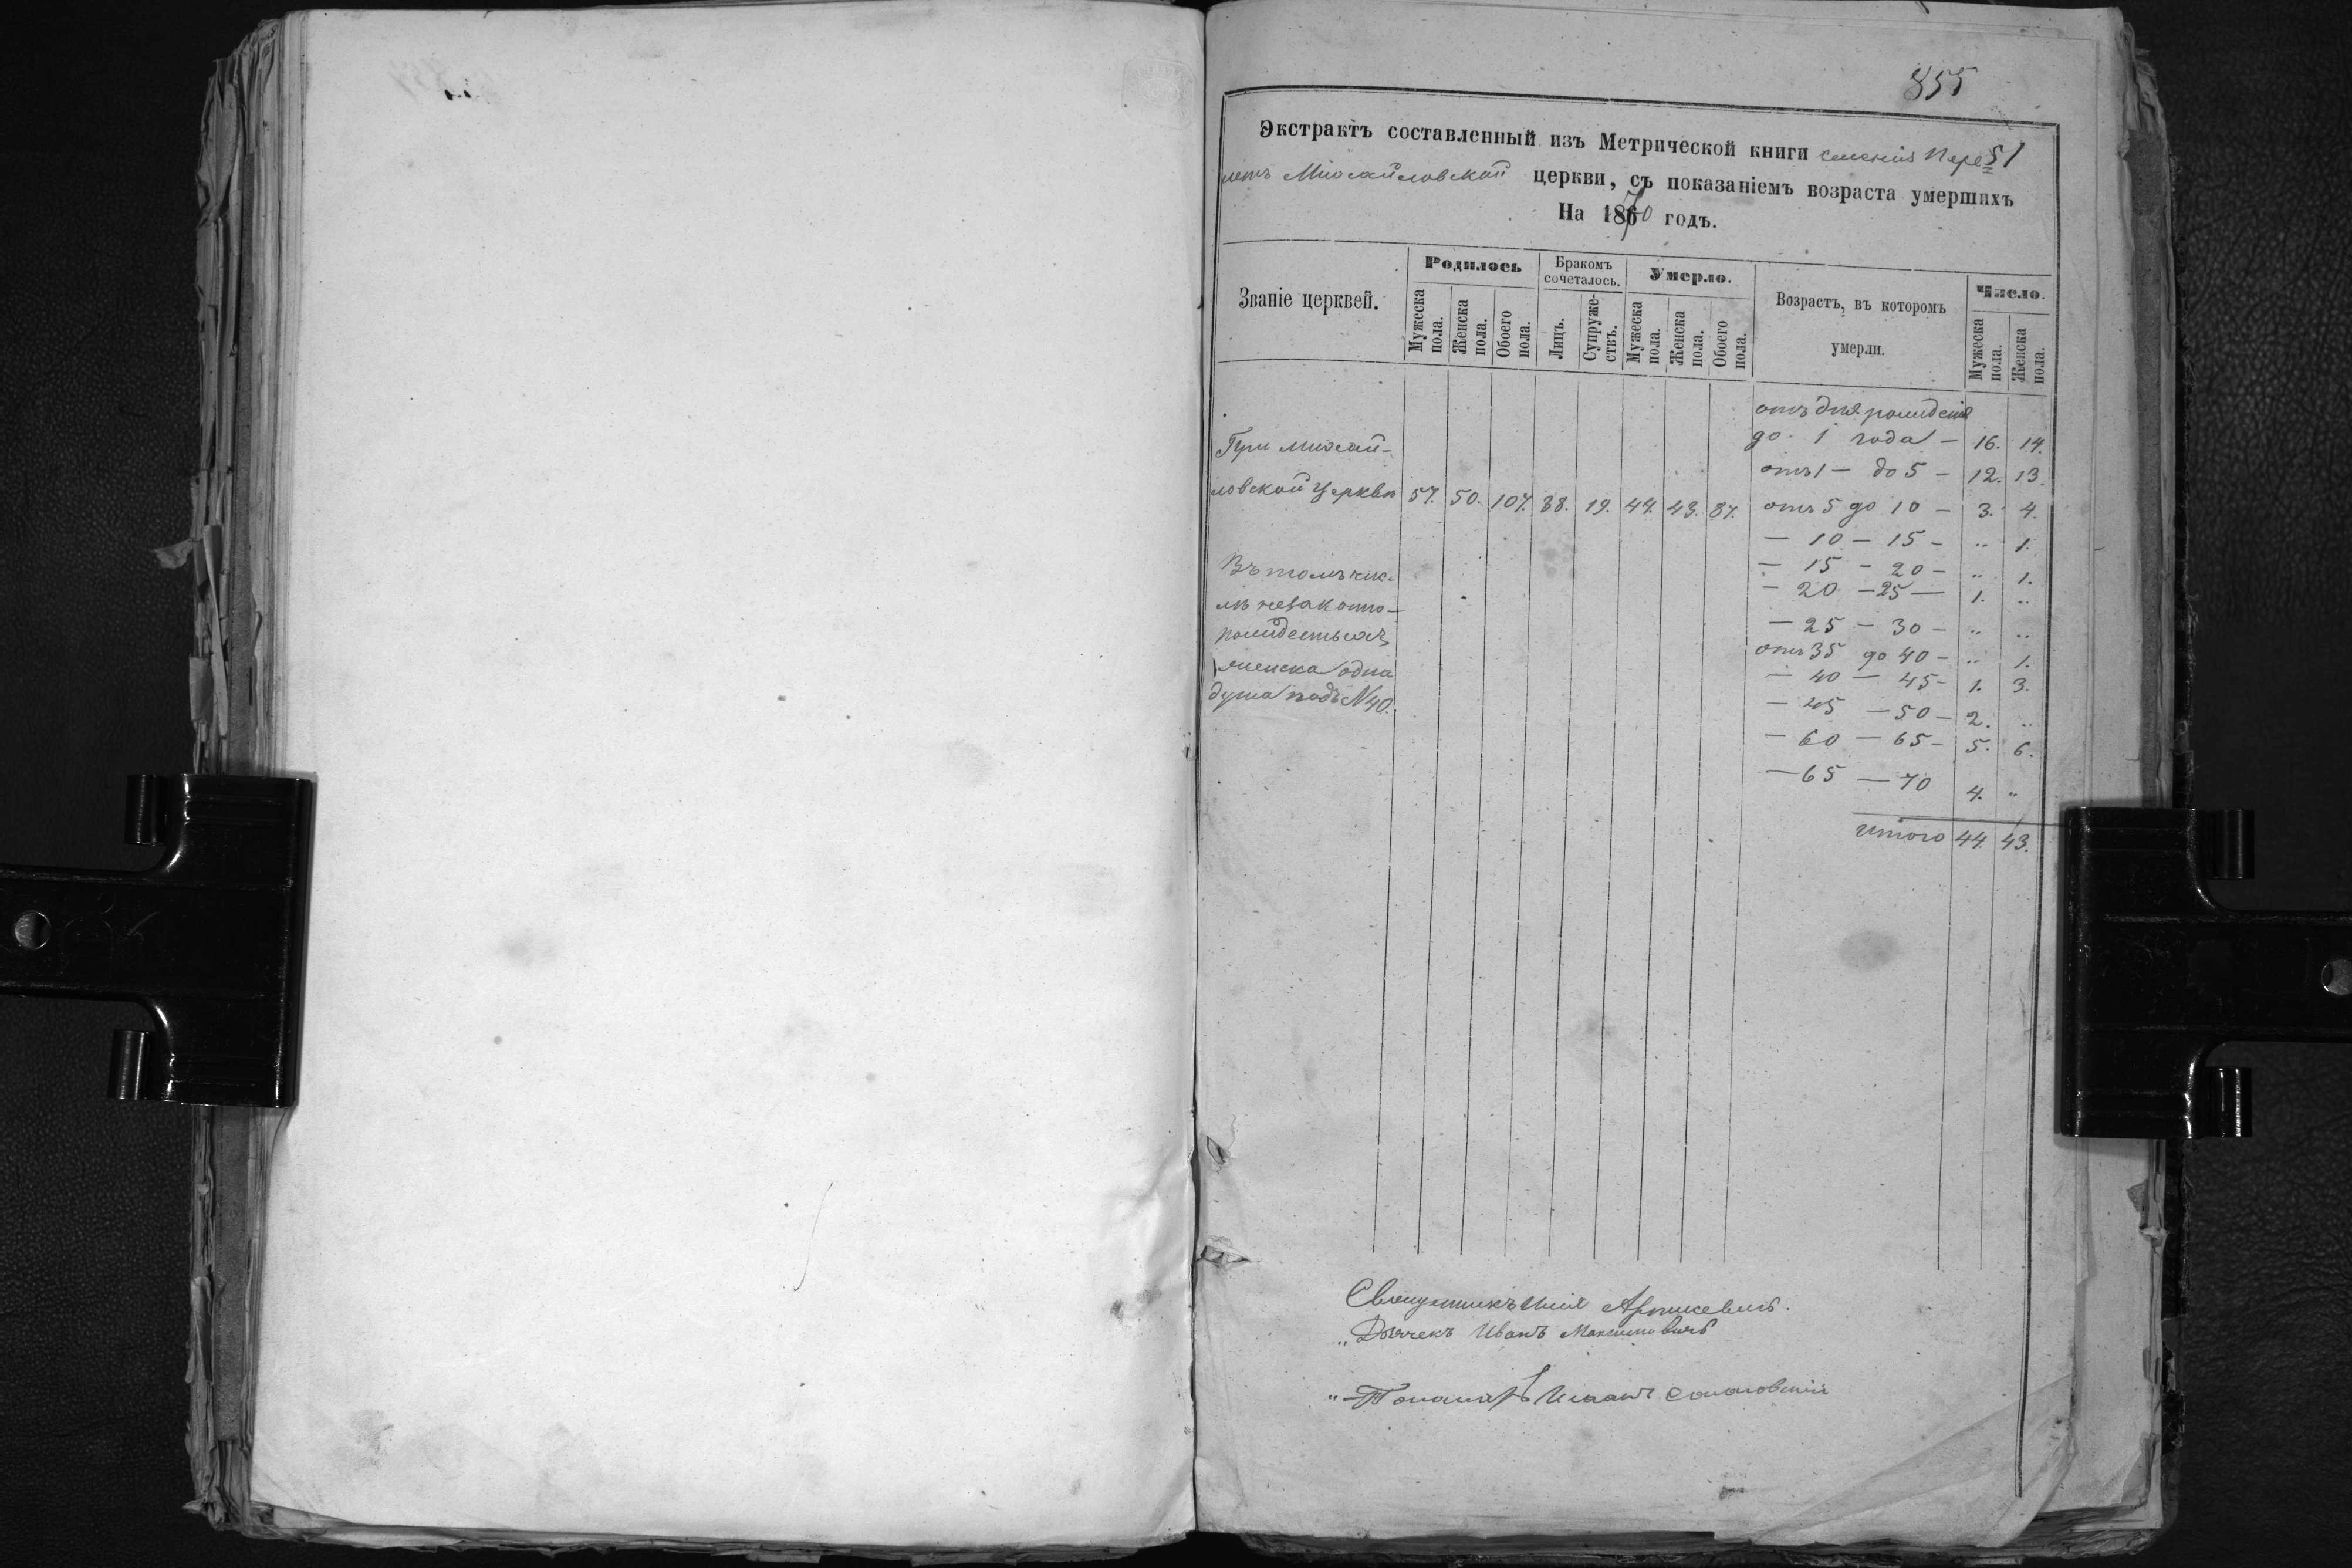 855
Экстрактъ составленный изъ Метрической книги селенія Пере 51
летъ Михайловской церкви, съ показаніемъ возраста умершихъ
На 1870 годъ.
Званіе церквей. Родилось Бракомъ сочеталось. Умерло. Возрастъ, въ которомъ умерли. Число.
Мужеска пола. Женска пола. Обоего пола. Лицъ. Супружествъ. Мужеска пола. Женска пола. Обоего пола. Мужеска пола. Женска пола.
отъ дня рожденія
до 1 года — 16. 14.
При Михай-
отъ 1 — до 5 — 12. 13.
ловской Церкви 57. 50. 107. 38. 19. 44. 43. 87. отъ 5 до 10 — 3. 4.
— 10 — 15 — „ 1.
Въ томъ чис-
— 15 — 20 — „ 1.
лѣ незаконно-
— 20 — 25 — 1. „
рожденныхъ
— 25 — 30 — „ „
отъ 35 до 40 — „ 1.
женска одна
— 40 — 45 — 1. 3.
душа подъ N 40.
— 45 — 50 — 2. „
— 60 — 65 — 5. 6.
— 65 — 70 4. „
Итого 44. 43.
Священникъ
„ Дьячекъ Иванъ Максимовичъ
„ Пономарь